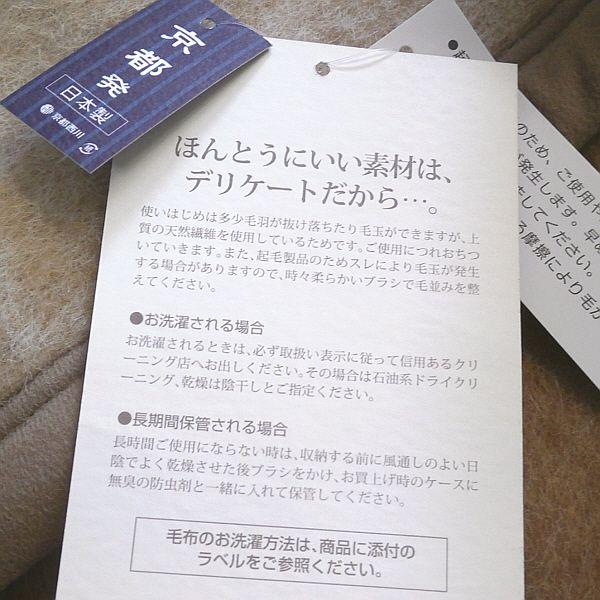 京都発
日本製
京都西川
ほんとうにいい素材は、
デリケートだから…。
使いはじめは多少毛羽が抜け落ちたり毛玉ができますが、上
質の天然繊維を使用しているためです。ご使用につれおちつ
いていきます。また、起毛製品のためスレにより毛玉が発生
する場合がありますので、時々柔らかいブラシで毛並みを整
えてください。
●お洗濯される場合
お洗濯されるときは、必ず取扱い表示に従って信用あるクリ
ーニング店へお出しください。その場合は石油系ドライクリ
ーニング、乾燥は陰干しとご指定ください。
●長期間保管される場合
長時間ご使用にならない時は、収納する前に風通しのよい日
陰でよく乾燥させた後ブラシをかけ、お買上げ時のケースに
無臭の防虫剤と一緒に入れて保管してください。
毛布のお洗濯方法は、商品に添付の
ラベルをご参照ください。
のため、ご使用
が発生します。早
してください。
る摩擦により毛が